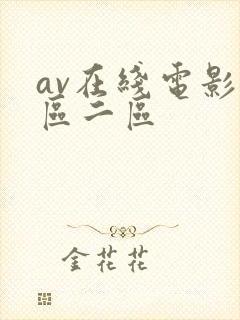 av在綫電影
區二區
金花花